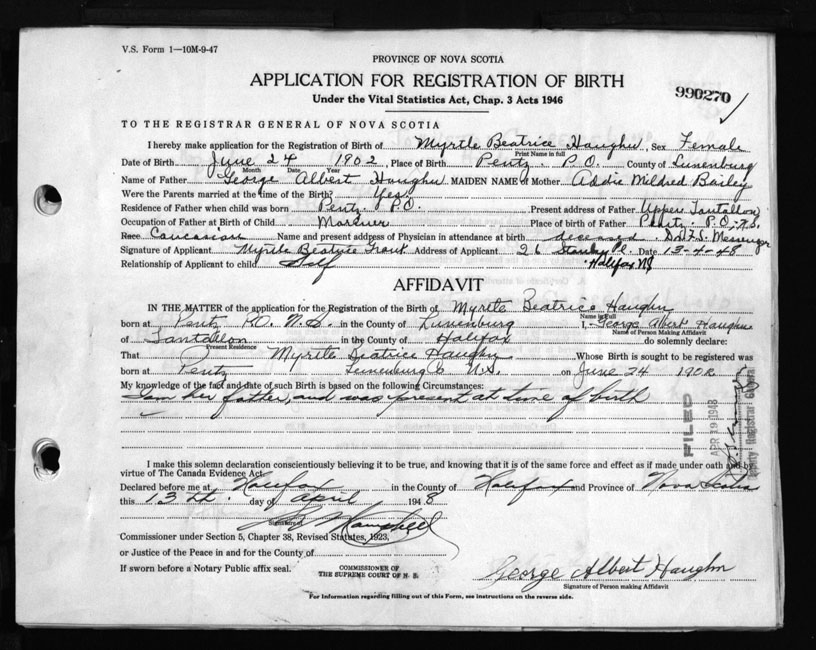 V.S. Form 1—10M-9-47
PROVINCE OF NOVA SCOTIA
APPLICATION FOR REGISTRATION OF BIRTH
990270
Under the Vital Statistics Act, Chap. 3 Acts 1946
TO THE REGISTRAR GENERAL OF NOVA SCOTIA
I hereby make application for the Registration of Birth of Myrtle Beatrice Haughn, Sex Female
Print Name in full
Date of Birth June 24 1902, Place of Birth Pentz P.O. County of Lunenburg
Month Date Year
Name of Father George Albert Haughn MAIDEN NAME of Mother Addie Mildred Bailey
Were the Parents married at the time of the Birth? Yes
Residence of Father when child was born Pentz P.O. Present address of Father Upper Tantallon
Occupation of Father at Birth of Child Mariner Place of birth of Father Pentz P.O., N.S.
Race Caucasian Name and present address of Physician in attendance at birth deceased
Signature of Applicant Myrtle Beatrice Address of Applicant 26 Stanley Pl. Date 13-4-48
Halifax NS
Relationship of Applicant to child Self
AFFIDAVIT
IN THE MATTER of the application for the Registration of the Birth of Myrtle Beatrice Haughn
Name in Full
born at Pentz P.O. N.S. in the County of Lunenburg I, George Albert Haughn
Name of Person making Affidavit
of Tantallon in the County of Halifax do solemnly declare:
Present Residence
That Myrtle Beatrice Haughn Whose Birth is sought to be registered was
born at Pentz Lunenburg Co N.S. on June 24 1902
My knowledge of the fact and date of such Birth is based on the following Circumstances:
I am her father, and was present at time of birth
FILED
APR 19 1948
Deputy Registrar General
I make this solemn declaration conscientiously believing it to be true, and knowing that it is of the same force and effect as if made under oath and by
virtue of The Canada Evidence Act.
Declared before me at Halifax in the County of Halifax and Province of Nova Scotia
this 13th. day of April 1948
Signature of
Commissioner under Section 5, Chapter 38, Revised Statutes, 1923,
or Justice of the Peace in and for the County of
If sworn before a Notary Public affix seal.
COMMISSIONER OF
THE SUPREME COURT OF N. S.
George Albert Haughn
Signature of Person making Affidavit
For Information regarding filling out of this Form, see instructions on the reverse side.